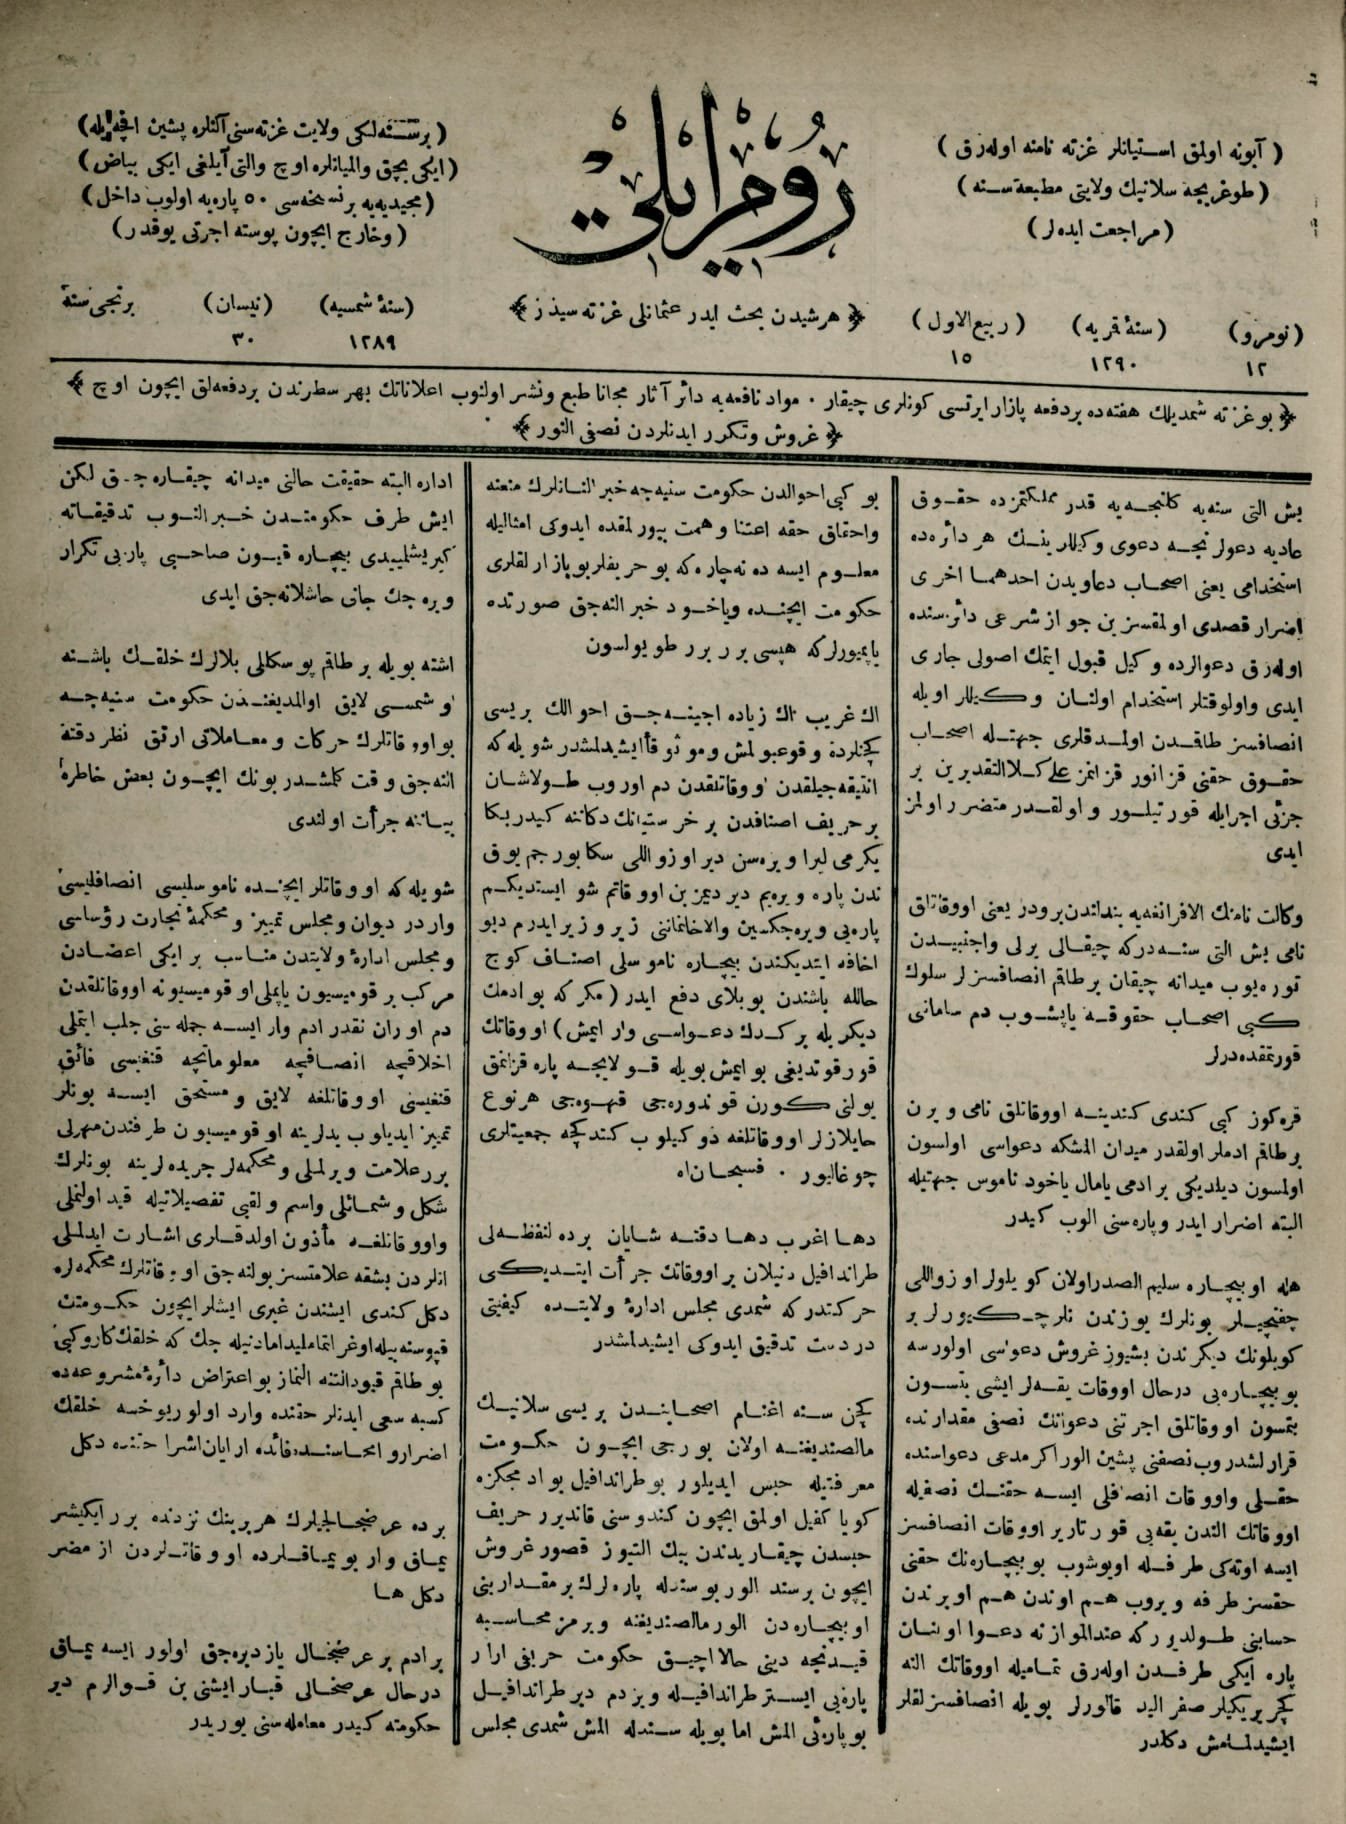 ( آبونه اولمق استیانلر غزته نامنه اوله‌رق )
( طوغریجه سلانیك ولایتی مطبعه‌سنه )
( مراجعت ایده‌لر )
روم ایلی
( برسنه‌لكی ولایت غزته‌سنی آلنلره پشین اقچه ایله )
( ایكی بچق والمیانلره اوچ والتی آیلغی ایكی بیاض )
( مجیدیه‌یه برنسخه‌سی ٥٠ پاره‌یه اولوب داخل )
( وخارج ایچون پوسته اجرتی یوقدر )
﴿ هرشیدن بحث ایدر عثمانلی غزته سیدر ﴾
(نومرو) (سنهٔ قمریه) (ربیع‌الاول)
١٢ ١٢٩٠ ١٥
(سنهٔ شمسیه) (نیسان) برنجی سنه
١٢٨٩ ٣٠
﴿ بوغزته شمدیلك هفته‌ده بردفعه پازار ایرتسی كونلری چیقار . مواد نافعه‌یه دائر آثار مجانا طبع ونشر اولنوب اعلاناتك بهر سطرندن بردفعه‌لق ایچون اوچ ﴾
﴿ غروش وتكرر ایدنلردن نصفی النور ﴾
بش التی سنه‌یه كلنجه‌یه قدر مملكتمزده حقوق
عادیه دعولرنجه دعوی وكیللرینك هر دائره‌ده
استخدامی یعنی اصحاب دعاویدن احدهما اخری
اضرار قصدی اولمقسزین جواز شرعی دائره‌سنده
اوله‌رق دعوالرده وكیل قبول ایتمك اصولی جاری
ایدی واولوقتلر استخدام اولنان وكیللر اویله
انصافسز طاقدن اولمدقلری جهتله اصحاب
حقوق حقنی قزانور قزانمز علی كلاالتقدیرین بر
جزئی اجرایله قورتیلور و اولقدر متضرر اولمز
ایدی
وكالت نامنك الافرانغه‌یه بنداندن‌برودر یعنی اووقاتلق
نامی بش التی سنه‌دركه چیقالی یرلی واجنبیدن
توره‌یوب میدانه چیقان برطاقم انصافسزلر سلوك
كبی اصحاب حقوقه یاپشوب دم سامانی
قورتمقده‌درلر
قره‌كوز كبی كندی كندینه اووقاتلق نامی ویرن
برطاقم ادملر اولقدر میدان المشكه دعواسی اولسون
اولمسون دیلدیكی بر ادمی یامال یاخود ناموس جهتیله
البته اضرار ایدر وپاره‌سنی الوب كیدر
هله او بیچاره سلیم الصدراولان كویلولر اوزواللی
چفتجیلر بونلرك یوزندن نلر چكیورلر بر
كویلونك دیكرندن بشیوز غروش دعواسی اولورسه
بوبیچاره‌یی درحال اووقات یقه‌لر ایشی بتسون
بتمسون اووقاتلق اجرتنی دعوانك نصفی مقدارنده
قرارلشدروب نصفنی پشین الور اكر مدعی دعواسنده
حقلی واووقات انصافلی ایسه حقنك نصفیله
اووقاتك الندن یقه‌یی قورتاریر اووقات انصافسز
ایسه اوته‌كی طرفله اویوشوب بوبیچاره‌نك حقنی
حقسز طرفه ویروب هم اوندن هم اوبرندن
حسابنی طولدیرركه عندالموازنه دعوا اولنان
پاره ایكی طرفدن اوله‌رق تمامیله اووقاتك النه
كچر بریكیلر صفر الید قالورلر بویله انصافسزلقلر
ایشیدلمامش دكلدر
بو كبی احوالدن حكومت سنیه‌جه خبر النانلرك منعنه
واحقاق حقه اعتنا وهمت بیورلمقده ایدوكی امثالیله
معلوم ایسه ده نه‌چاره كه بوحریفلر بوپازارلقلری
حكومت ایچنده ویاخود خبر النه‌جق صورتده
یاپمیورلركه هپسی برر برر طویولسون
اك غریب اك زیاده اجینه‌جق احوالك بریسی
كچنلرده وقوعبولمش وموثوقاً ایشیدلمشدر شویله‌كه
انتیقه‌جیلقدن اووقاتلقدن دم اوروب طولاشان
برحریف اصنافدن بر خرستیانك دكاننه كیدربكا
یكرمی لیرا ویره‌سن دیر اوزواللی سكا بورجم یوق
ندن پاره ویره‌یم دیر دیمز بن اووقاتم شو ایستدیكم
پاره‌یی ویره‌جكسین والاخانماننی زیر وزبر ایدرم دیو
اخافه ایتدیكندن بیچاره ناموسلی اصناف كوج
حالله باشندن بوبلای دفع ایدر (مكركه بوادمك
دیكریله بر كدك دعواسی وار ایمش) اووقاتك
قورقوتدیغی بوایمش بویله قولایجه پاره قزانمق
یولنی كورن قوندوره‌جی قهوه‌جی هرنوع
حایلازلر اووقاتلغه دوكیلوب كندكچه جمعیتلری
چوغالیور . فسبحان‌اه
دها اغرب دها دقته شایان برده لنفظه‌لی
طراندافیل دنیلان بر اووقاتك جرأت ایتدیكی
حركتدركه شمدی مجلس ادارهٔ ولایتده كیفیتی
دردست تدقیق ایدوكی ایشیدلمشدر
كچن سنه اغنام اصحابندن بریسی سلانیك
مالصندیغنه اولان بورجی ایچون حكومت
معرفتیله حبس ایدیلور بوطراندافیل بوادمجكزه
كویا كفیل اولمق ایچون كندوسنی قاندیرر حریف
حبسدن چیقاریدندن بیك التیوز قصور غروش
ایچون برسند الور بوسندله پاره‌لرك بر مقدارینی
اوبیچاره‌دن الور مالصندیغنه ویرمز محاسبه
قیدنجه دینی حالا اچیق حكومت حریفی ارار
پاره‌یی ایستر طراندافیله ویردم دیر طراندافیل
بوپاره‌ئی المش اما بویله سندله المش شمدی مجلس
اداره البته حقیقت حالنی میدانه چیقاره‌جق لكن
ایش طرف حكومتدن خبر النوب تدقیقاته
كیریشلمیدی بیچاره قیون صاحبی پاره‌یی تكرار
ویره‌جك جانی حاشلانه‌جق ایدی
اشته بویله برطاقم پوسكاللی بلالرك خلقك باشنه
اوشمسی لایق اوالمدیغندن حكومت سنیه‌جه
بواووقاتلرك حركات ومعاملاتی ارتق نظر دقته
النه‌جق وقت كلمشدر بونك ایچون بعض خاطره
بیاننه جرأت اولندی
شویله‌كه اووقاتلر ایچنده ناموسلیسی انصافلیسی
واردر دیوان ومجلس تمییز ومحكمهٔ تجارت رؤساسی
ومجلس ادارهٔ ولایتدن مناسب بر ایكی اعضادن
مركب بر قومیسیون یاپملی او قومیسیونه اووقاتلقدن
دم اوران نقدر ادم وار ایسه جمله‌سنی جلب ایتملی
اخلاقجه انصافجه معلوماتجه قنغیسی فائق
قنغیسی اووقاتلغه لایق ومستحق ایسه بونلر
تمییز ایدیلوب یدلرینه او قومیسیون طرفندن مهرلی
برر علامت ویرلملی ومحكمه‌لر جریده‌لرینه بونلرك
شكل وشمائلی واسم ولقبی تفصیلاتیله قید اولنملی
واووقاتلغه مأذون اولدقلری اشارت ایدلملی
انلردن بشقه علامتسز بولنه‌جق اووقاتلرك محكمه‌لره
دكل كندی ایشندن غیری ایشلر ایچون حكومتك
قپوسنه بیله‌اوغراتماملیدامادنیله‌جك كه خلقك كاروكسبی
بوطاقم قیودالتنه النماز بواعتراض دائرهٔ مشروعه‌ده
كسبه سعی ایدنلر حقنده وارد اولور یوخسه خلقك
اضرارو انحاسنده‌فائده ارایان‌اشرا حقنده دكل
برده عرضحالجیلرك هربرینك نزدنده برر ایكیشر
یماق وار بویماقلرده اووقاتلردن ازمضر
دكل ها
برادم بر عرضحال یازدیره‌جق اولور ایسه یماق
درحال عرضحالی قپار ایشنی بن قوالرم دیر
حكومته كیدر معامله‌سنی یوریدر